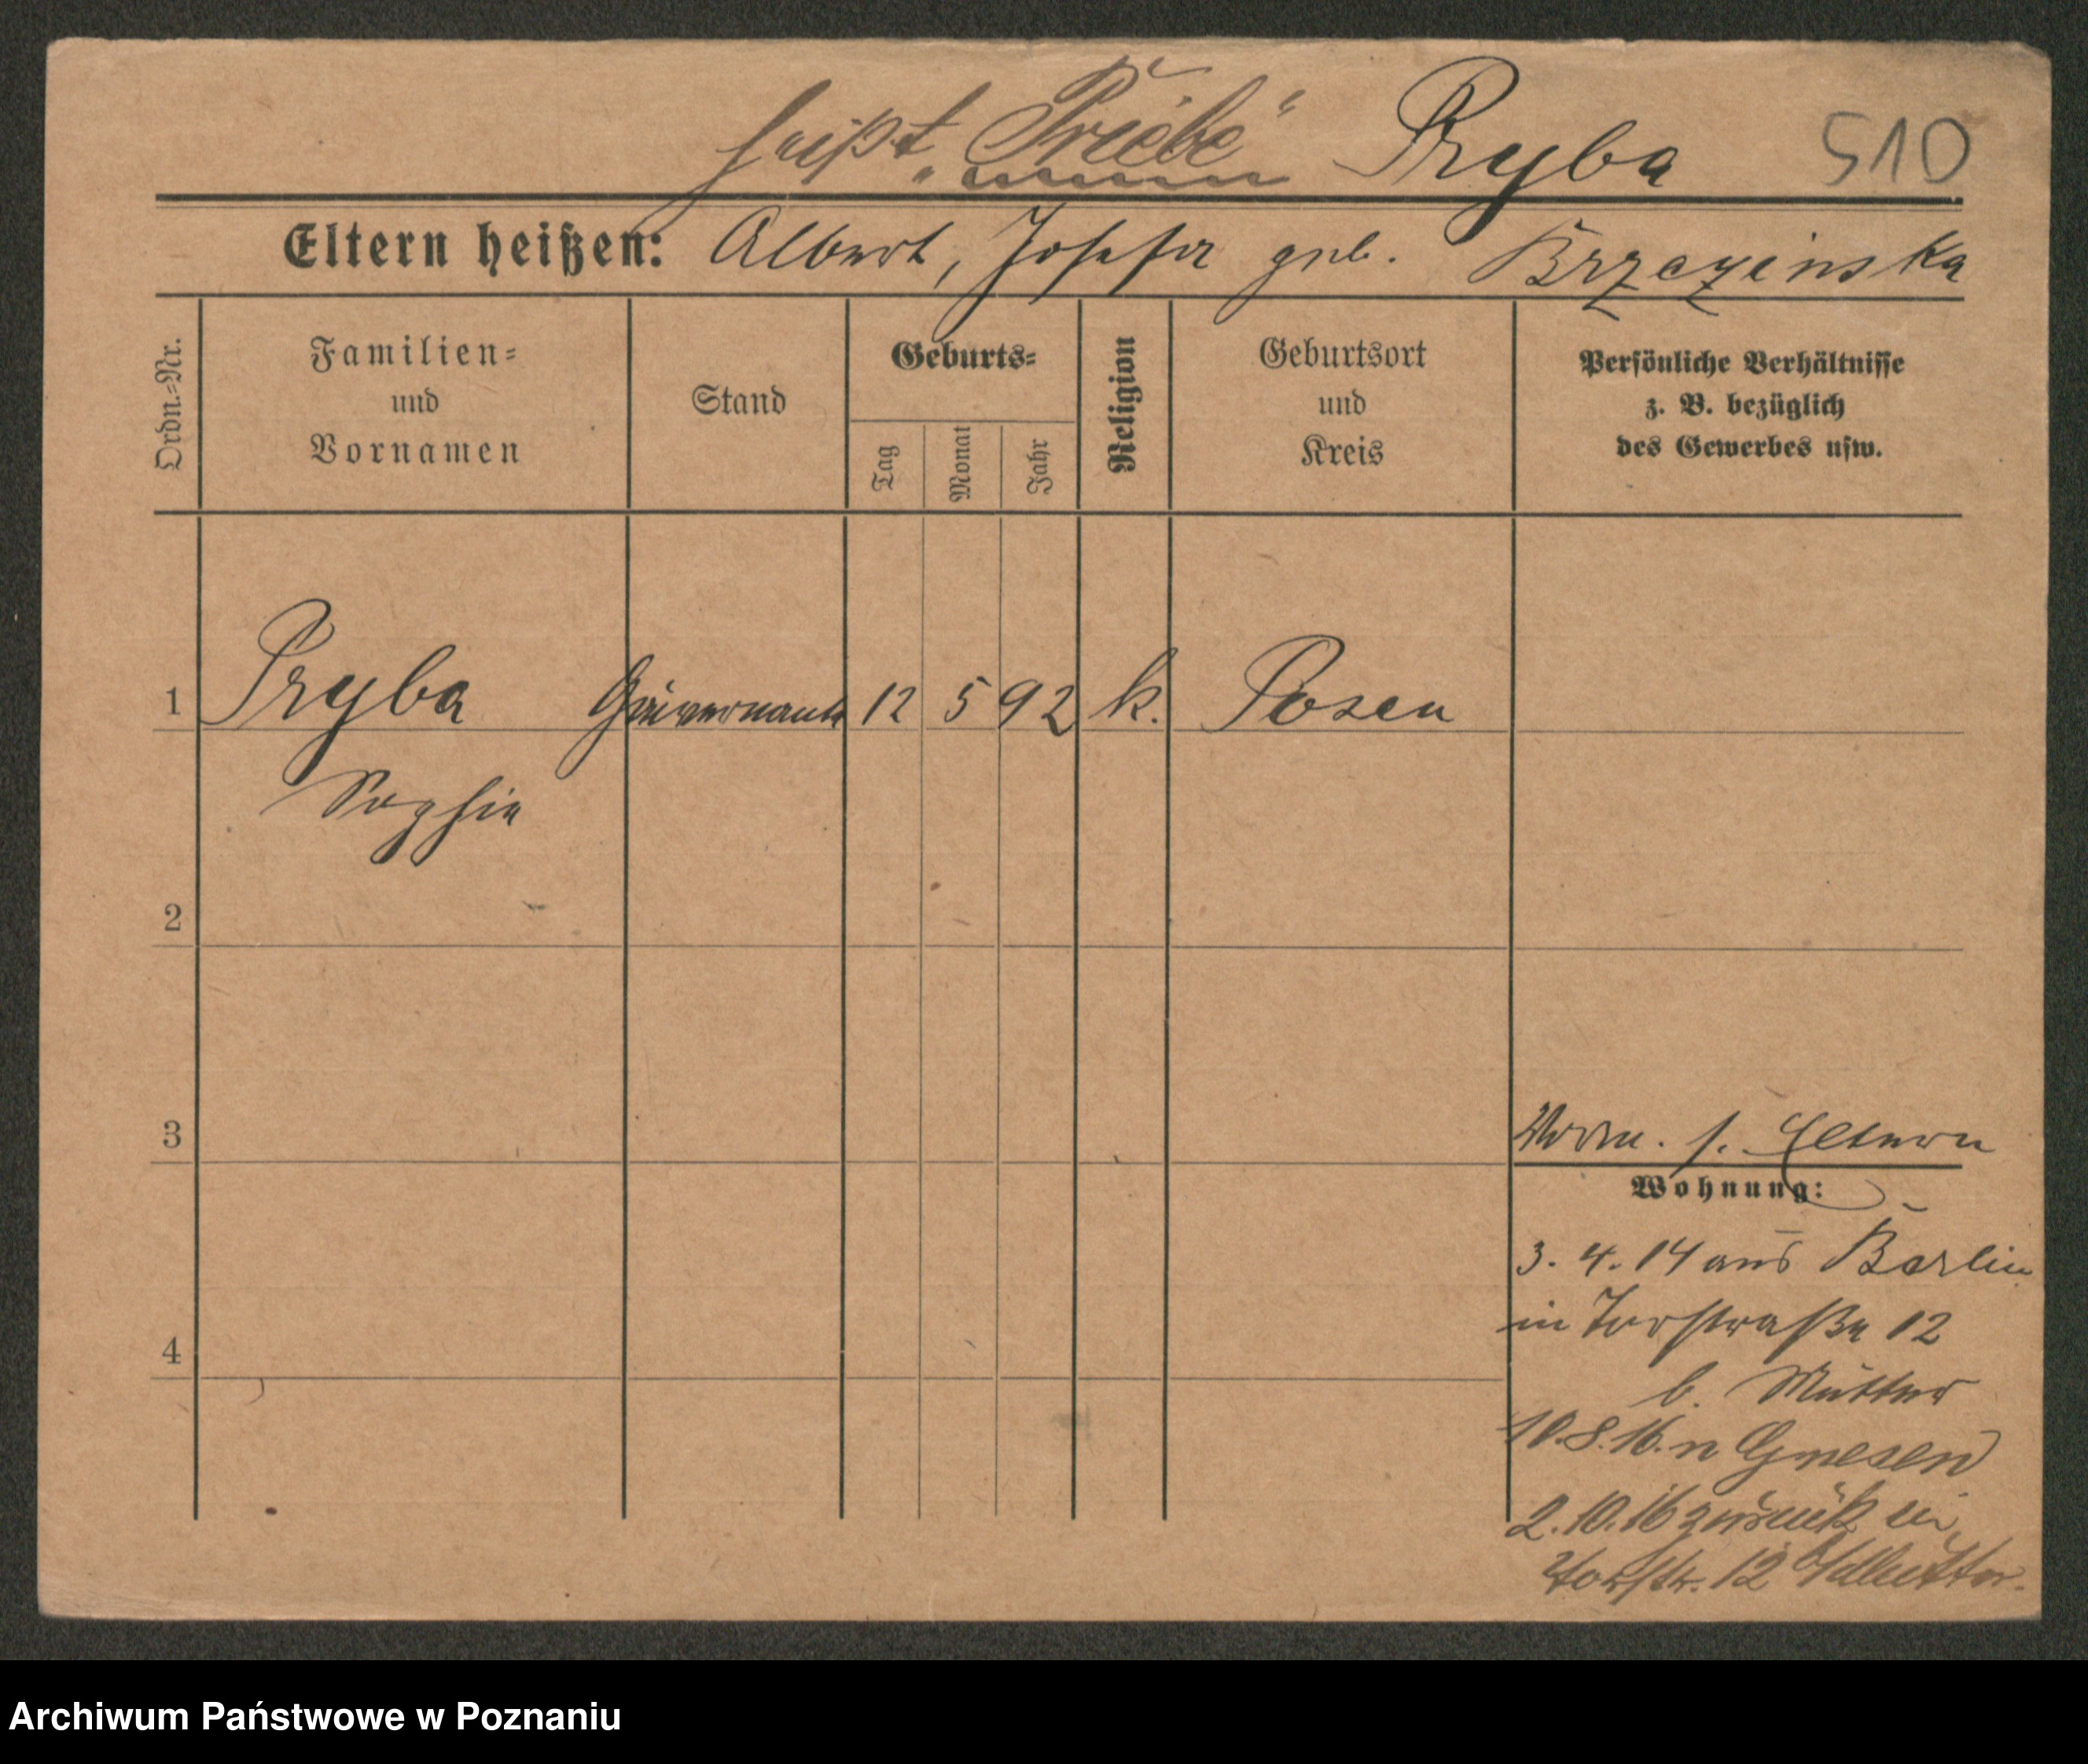 heißt „Priebe" Pryba 510
Eltern heißen: Albert, Josefa geb. Brzezinska
Ordn.-Nr.
Familien-
und
Vornamen
Stand
Geburts-
Tag
Monat
Jahr
Religion
Geburtsort
und
Kreis
Persönliche Verhältnisse
z. B. bezüglich
des Gewerbes usw.
1 Pryba Gouvernante 12 5 92 k. Posen
Sophie
2
3
Vorm. s. Eltern
Wohnung:
3. 4. 14 aus Berlin
in Torstraße 12
4
b. Mutter
10.8.16. n Gnesen
2.10.16 zurück in
Torstr. 12 Mutter.
Archiwum Państwowe w Poznaniu